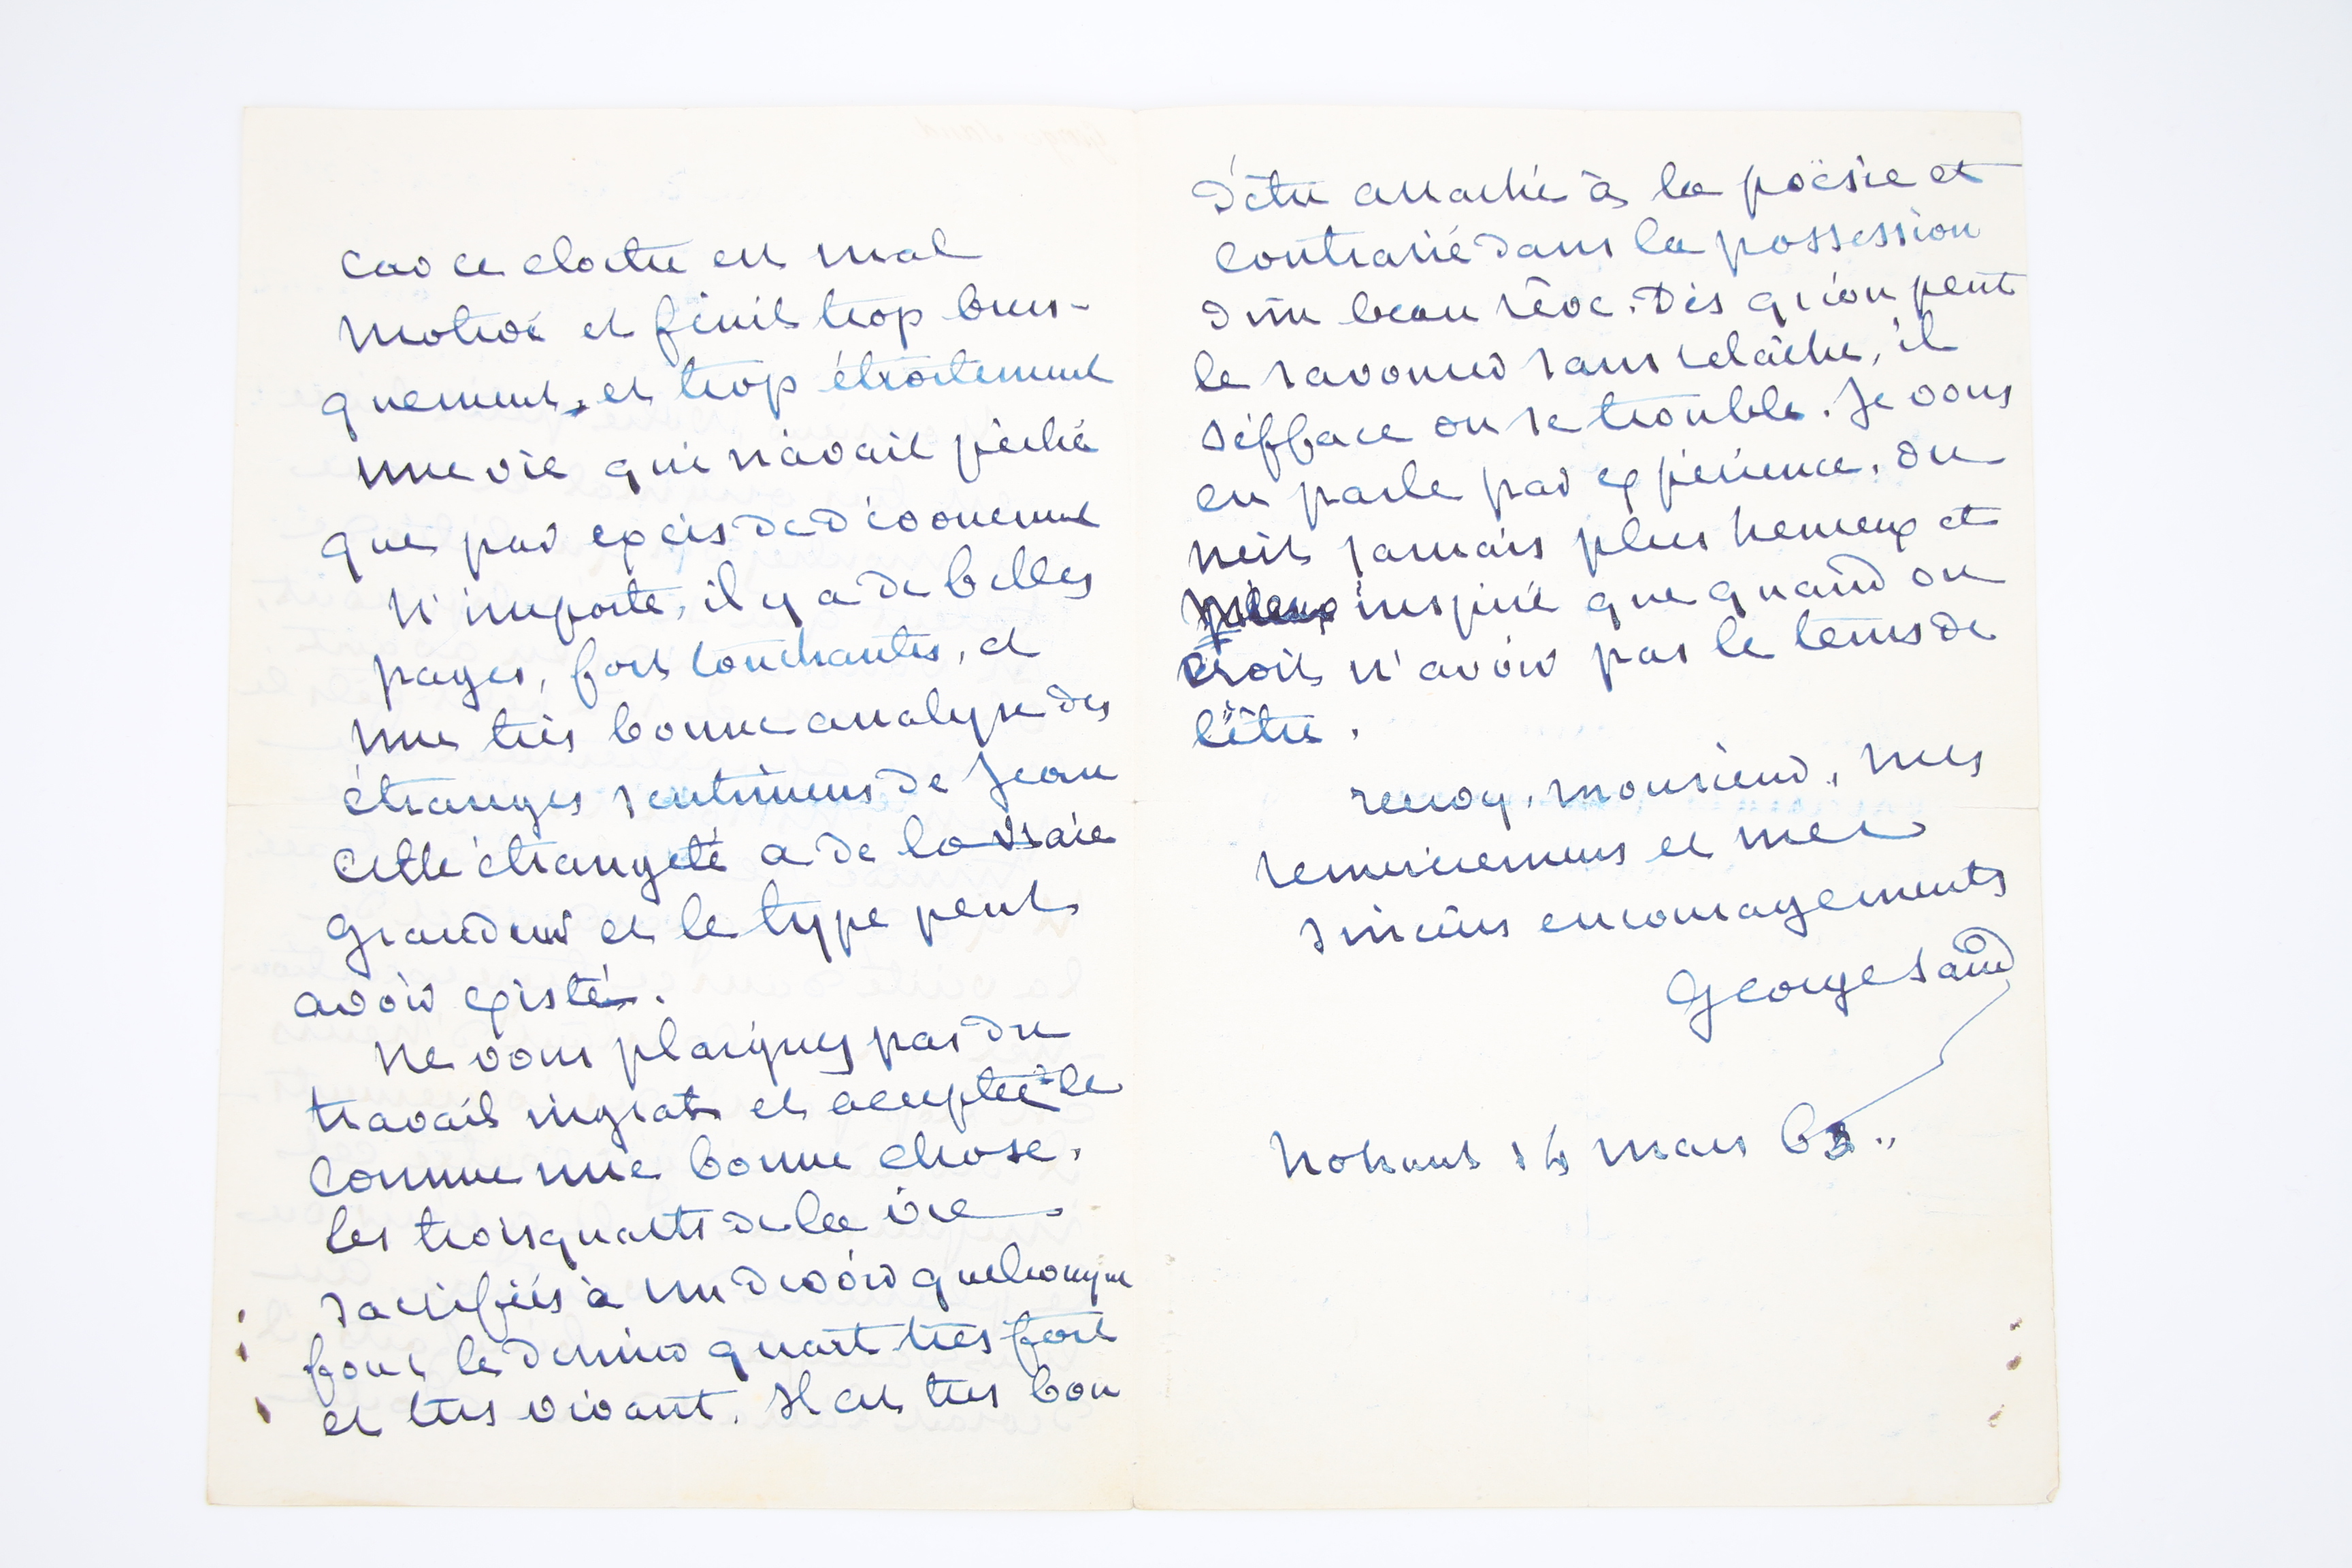 car ce cloître est mal
motivé et finit trop brus-
quement, et trop étroitement
une vie qui n'avait péché
que par excès de dévouement
N'importe, il y a de belles
pages, fort touchantes, et
une très bonne analyse des
étranges sentimens de Jean
Cette étrangeté a de la vraie
grandeur et le type peut
avoir existé.
Ne vous plaignez pas du
travail ingrat et acceptez le
comme une bonne chose.
les trois quarts de la vie
sacrifiés à un devoir quelconque
font le dernier quart très fort
et très vivant. Il est très bon
d'être arraché à la poësie et
contrarié dans la possession
d'un beau rêve. Dès qu'on peut
le savourer sans relâche, il
s'efface ou se trouble. Je vous
en parle par expérience. On
n'est jamais plus heureux et
mieux inspiré que quand on
croit n'avoir pas le tems de
l'être.
recevez, monsieur, mes
remerciemens et mes
sincères encouragements
George Sand
Nohant 14 mars 63.